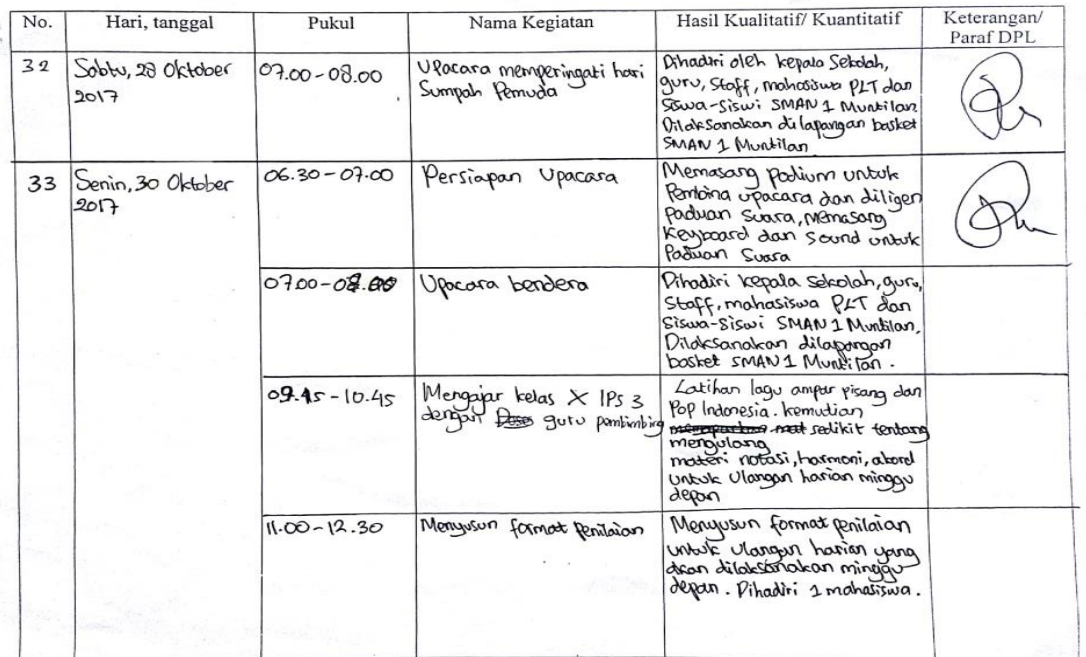 No. Hari, tanggal Pukul Nama Kegiatan Hasil Kualitatif/ Kuantitatif Keterangan/
Paraf DPL
32 Sabtu, 28 Oktober
2017
07.00-08.00
Upacara memperingati hari
Sumpah Pemuda
Dihadiri oleh kepala Sekolah,
guru, staff, mahasiswa PLT dan
Siswa-Siswi SMAN 1 Muntilan.
Dilaksanakan dilapangan basket
SMAN 1 Muntilan
33 Senin, 30 Oktober
2017
06.30-07.00
Persiapan Upacara
Memasang podium untuk
Pembina upacara dan diligen
Paduan Suara, memasang
Keyboard dan sound untuk
Paduan Suara
07.00-08.00
Upacara bendera
Dihadiri kepala sekolah, guru,
Staff, mahasiswa PLT dan
Siswa-Siswi SMAN 1 Muntilan.
Dilaksanakan dilapangan
basket SMAN 1 Muntilan.
09.15-10.45
Mengajar kelas X IPS 3
dengan guru pembimbing
Latihan lagu ampar pisang dan
Pop Indonesia. kemudian
sedikit tentang
mengulang
materi notasi, harmoni, akord
untuk Ulangan harian minggu
depan
11.00-12.30
Menyusun format Penilaian
Menyusun format penilaian
untuk Ulangan harian yang
akan dilaksanakan minggu
depan. Dihadiri 1 mahasiswa.